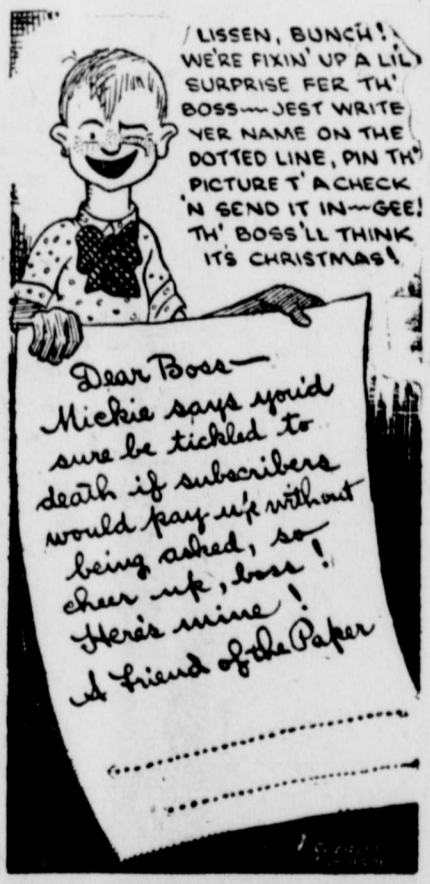 LISSEN, BUNCH!
WE'RE FIXIN' UP A LI'L
SURPRISE FER TH'
BOSS — JEST WRITE
YER NAME ON THE
DOTTED LINE, PIN TH'
PICTURE T' A CHECK
'N SEND IT IN — GEE!
TH' BOSS'LL THINK
IT'S CHRISTMAS!
Dear Boss —
Mickie says you'd
sure be tickled to
death if subscribers
would pay up without
being asked, so
cheer up, boss!
Here's mine!
A Friend of the Paper